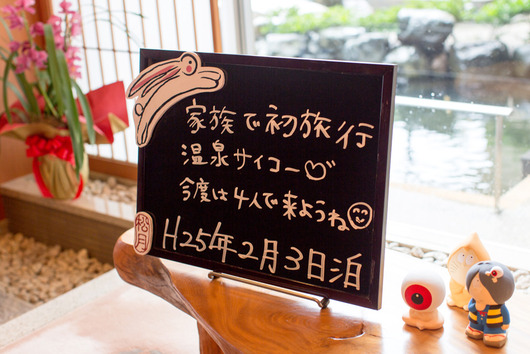 家族で初旅行
温泉サイコー♡
今度は4人で来ようね☺
H25年2月3日泊
松月